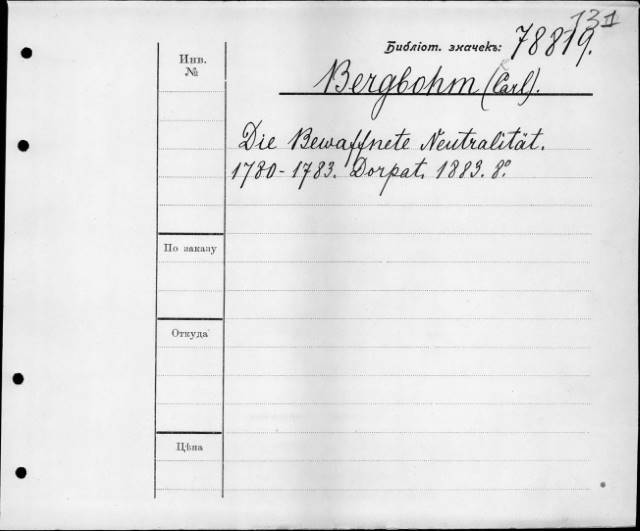 131
Библіот. значекъ: 78819.
Инв.
№
Bergbohm (Carl).
Die Bewaffnete Neutralität.
1780-1783. Dorpat. 1883. 8º
По заказу
Откуда
Цѣна